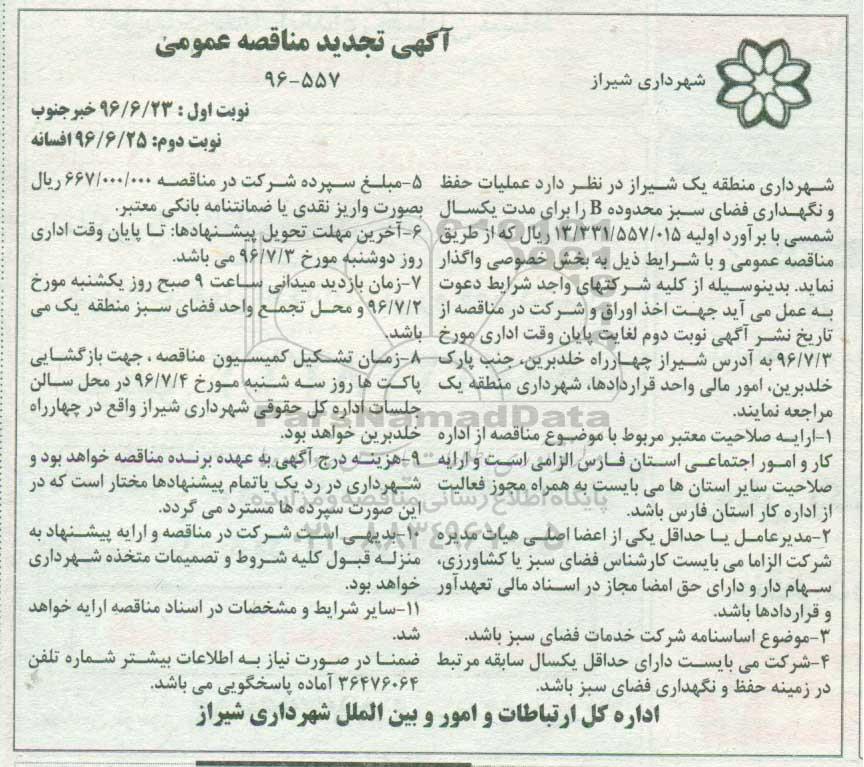 آگهی تجدید مناقصه عمومی
۹۶-۵۵۷
شهرداری شیراز
نوبت اول : ۹۶/۶/۲۳ خبر جنوب
نوبت دوم: ۹۶/۶/۲۵ افسانه
شهرداری منطقه یک شیراز در نظر دارد عملیات حفظ
و نگهداری فضای سبز محدوده B را برای مدت یکسال
شمسی با برآورد اولیه ۱۳/۳۳۱/۵۵۷/۰۱۵ ریال که از طریق
مناقصه عمومی و با شرایط ذیل به بخش خصوصی واگذار
نماید. بدینوسیله از کلیه شرکتهای واجد شرایط دعوت
به عمل می آید جهت اخذ اوراق و شرکت در مناقصه از
تاریخ نشر آگهی نوبت دوم لغایت پایان وقت اداری مورخ
۹۶/۷/۳ به آدرس شیراز چهارراه خلدبرین، جنب پارک
خلدبرین، امور مالی واحد قراردادها، شهرداری منطقه یک
مراجعه نمایند.
۱-ارایه صلاحیت معتبر مربوط با موضوع مناقصه از اداره
کار و امور اجتماعی استان فارس الزامی است و ارایه
صلاحیت سایر استان ها می بایست به همراه مجوز فعالیت
از اداره کار استان فارس باشد.
۲-مدیرعامل یا حداقل یکی از اعضا اصلی هیات مدیره
شرکت الزاما می بایست کارشناس فضای سبز یا کشاورزی،
سهام دار و دارای حق امضا مجاز در اسناد مالی تعهدآور
و قراردادها باشد.
۳-موضوع اساسنامه شرکت خدمات فضای سبز باشد.
۴-شرکت می بایست دارای حداقل یکسال سابقه مرتبط
در زمینه حفظ و نگهداری فضای سبز باشد.
۵-مبلغ سپرده شرکت در مناقصه ۶۶۷/۰۰۰/۰۰۰ ریال
بصورت واریز نقدی یا ضمانتنامه بانکی معتبر.
۶-آخرین مهلت تحویل پیشنهادها: تا پایان وقت اداری
روز دوشنبه مورخ ۹۶/۷/۳ می باشد.
۷-زمان بازدید میدانی ساعت ۹ صبح روز یکشنبه مورخ
۹۶/۷/۲ و محل تجمع واحد فضای سبز منطقه یک می
باشد.
۸-زمان تشکیل کمیسیون مناقصه ، جهت بازگشایی
پاکت ها روز سه شنبه مورخ ۹۶/۷/۴ در محل سالن
جلسات اداره کل حقوقی شهرداری شیراز واقع در چهارراه
خلدبرین خواهد بود.
۹-هزینه درج آگهی به عهده برنده مناقصه خواهد بود و
شهرداری در رد یک یاتمام پیشنهادها مختار است که در
این صورت سپرده ها مسترد می گردد.
۱۰-بدیهی است شرکت در مناقصه و ارایه پیشنهاد به
منزله قبول کلیه شروط و تصمیمات متخذه شهرداری
خواهد بود.
۱۱-سایر شرایط و مشخصات در اسناد مناقصه ارایه خواهد
شد.
ضمنا در صورت نیاز به اطلاعات بیشتر شماره تلفن
۳۶۴۷۶۰۶۴ آماده پاسخگویی می باشد.
اداره کل ارتباطات و امور و بین الملل شهرداری شیراز
ParsNamadData
پایگاه اطلاع رسانی مناقصه و مزایده
۰۲۱-۸۸۳۴۹۶۷۰-۵